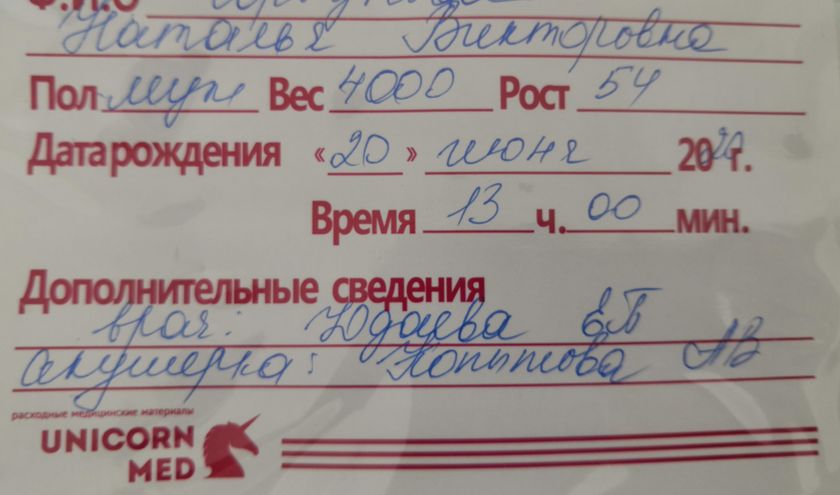 Ф.И.О
Наталья Викторовна
Пол муж Вес 4000 Рост 54
Дата рождения «20» июня 2020г.
Время 13 ч. 00 мин.
Дополнительные сведения
врач: Юдаева ЕП
акушерка: Копытова АВ
расходные медицинские материалы
UNICORN
MED